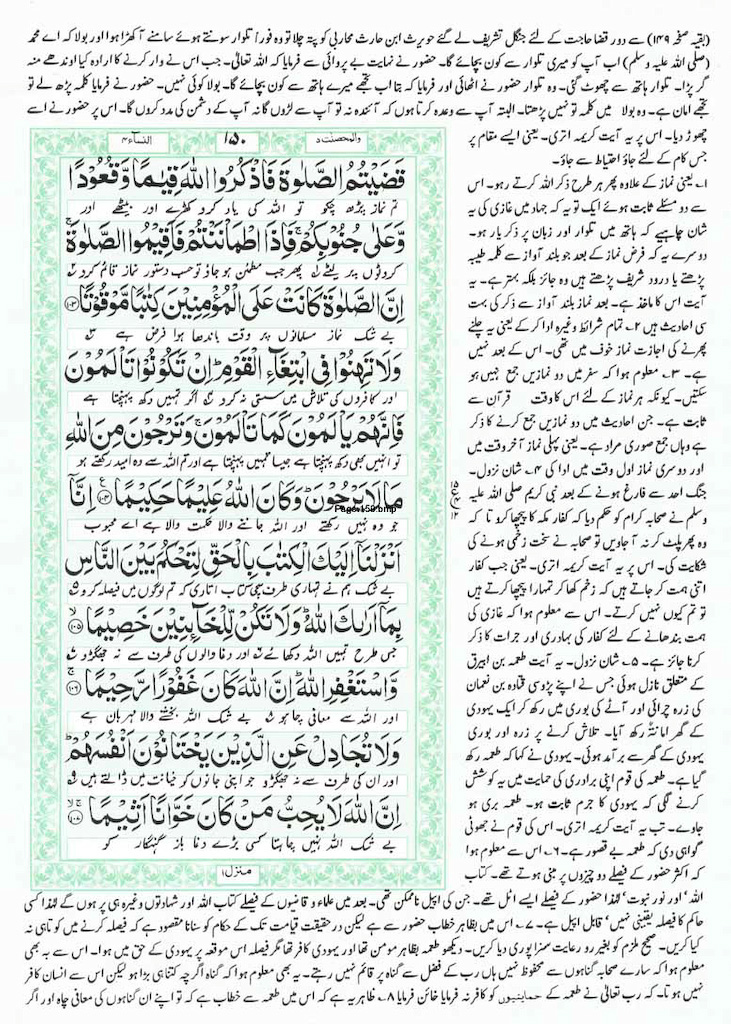 (بقیہ صفحہ ۱۴۹) سے دور قضا حاجت کے لئے جنگل تشریف لے گئے حویرث ابن حارث محاربی کو پتہ چلا تو وہ فوراً تلوار سونتے ہوئے سامنے آکھڑا ہوا اور بولا کہ اے محمد
(صلی اللہ علیہ وسلم) اب آپ کو میری تلوار سے کون بچائے گا۔ حضور نے نہایت بے پروائی سے فرمایا کہ اللہ تعالیٰ۔ جب اس نے وار کرنے کا ارادہ کیا اوندھے منہ
گر پڑا۔ تلوار ہاتھ سے چھوٹ گئی۔ وہ تلوار حضور نے اٹھائی اور فرمایا کہ بتا اب تجھے میرے ہاتھ سے کون بچائے گا۔ بولا کوئی نہیں۔ حضور نے فرمایا کلمہ پڑھ لے تو
تجھے امان ہے۔ وہ بولا میں کلمہ تو نہیں پڑھتا۔ البتہ آپ سے وعدہ کرتا ہوں کہ آئندہ نہ تو آپ سے لڑوں گا نہ آپ کے دشمن کی مدد کروں گا۔ اس پر حضور نے اسے
چھوڑ دیا۔ اس پر یہ آیت کریمہ اتری۔ یعنی ایسے مقام پر
جس کام کے لئے جاؤ احتیاط سے جاؤ۔
۱۔ یعنی نماز کے علاوہ پھر ہر طرح ذکر اللہ کرتے رہو۔ اس
سے دو مسئلے ثابت ہوئے ایک تو یہ کہ جہاد میں غازی کی یہ
شان چاہیے کہ ہاتھ میں تلوار اور زبان پر ذکر یار ہو۔
دوسرے یہ کہ فرض نماز کے بعد جو بلند آواز سے کلمہ طیبہ
پڑھتے یا درود شریف پڑھتے ہیں وہ جائز بلکہ بہتر ہے۔ یہ
آیت اس کا ماخذ ہے۔ بعد نماز بلند آواز سے ذکر کی بہت
سی احادیث ہیں ۲۔ تمام شرائط وغیرہ ادا کر کے یعنی یہ چلنے
پھرنے کی اجازت نماز خوف میں تھی۔ اس کے بعد نہیں
ہے۔ ۳۔ معلوم ہوا کہ سفر میں دو نمازیں جمع نہیں ہو
سکتیں۔ کیونکہ ہر نماز کے لئے اس کا وقت قرآن سے
ثابت ہے۔ جن احادیث میں دو نمازیں جمع کرنے کا ذکر
ہے وہاں جمع صوری مراد ہے۔ یعنی پہلی نماز آخر وقت میں
اور دوسری نماز اول وقت میں ادا کی ۴۔ شان نزول۔
جنگ احد سے فارغ ہونے کے بعد نبی کریم صلی اللہ علیہ
وسلم نے صحابہ کرام کو حکم دیا کہ کفار مکہ کا پیچھا کرو تا کہ
وہ پھر پلٹ کر نہ آجاویں تو صحابہ نے سخت زخمی ہونے کی
شکایت کی۔ اس پر یہ آیت کریمہ اتری۔ یعنی جب کفار
اتنی ہمت کر جاتے ہیں کہ زخم کھا کر تمہارا پیچھا کرتے ہیں
تو تم کیوں نہیں کرتے۔ اس سے معلوم ہوا کہ غازی کی
ہمت بندھانے کے لئے کفار کی بہادری اور جرات کا ذکر
کرنا جائز ہے۔ ۵۔ شان نزول۔ یہ آیت طعمہ بن ابیرق
کے متعلق نازل ہوئی جس نے اپنے پڑوسی قتادہ بن نعمان
کی زرہ چرائی اور آٹے کی بوری میں رکھ کر ایک یہودی
کے گھر امانتہ رکھ آیا۔ تلاش کرنے پر زرہ اور بوری
یہودی کے گھر سے برآمد ہوئی۔ یہودی نے کہا کہ طعمہ رکھ
گیا ہے۔ طعمہ کی قوم اپنی برادری کی حمایت میں یہ کوشش
کرنے لگی کہ یہودی کا جرم ثابت ہو۔ طعمہ بری ہو
جاوے۔ تب یہ آیت کریمہ اتری۔ اس کی قوم نے جھوٹی
گواہی دی کہ طعمہ بے قصور ہے۔ ۶۔ اس سے معلوم ہوا
کہ اکثر حضور کے فیصلے دو چیزوں پر مبنی ہوتے تھے۔ کتاب
اللہ' اور نور نبوت' لہٰذا حضور کے فیصلے ایسے اٹل تھے۔ جن کی اپیل ناممکن تھی۔ بعد میں علماء و قاضیوں کے فیصلے کتاب اللہ اور شہادتوں وغیرہ ہی پر ہوں گے لہٰذا کسی
حاکم کا فیصلہ یقینی نہیں' قابل اپیل ہے۔ ۷۔ اس میں بظاہر خطاب حضور سے ہے لیکن در حقیقت قیامت تک کے حکام کو سنانا مقصود ہے کہ فیصلہ کرنے میں کوتاہی نہ
کیا کریں۔ صحیح ملزم کو بغیر رو رعایت سزا پوری دیا کریں۔ دیکھو طعمہ بظاہر مومن تھا اور یہودی کافر تھا مگر فیصلہ اس موقعہ پر یہودی کے حق میں ہوا۔ اس سے یہ بھی
معلوم ہوا کہ سارے صحابہ گناہوں سے محفوظ نہیں ہاں رب کے فضل سے گناہ پر قائم نہیں رہتے۔ یہ بھی معلوم ہوا کہ گناہ اگرچہ کتنا ہی بڑا ہو لیکن اس سے انسان کافر
نہیں ہوتا۔ کہ رب تعالیٰ نے طعمہ کے حمایتیوں کو کافر نہ فرمایا خائن فرمایا ۸۔ ظاہر یہ ہے کہ اس میں طعمہ سے خطاب ہے کہ تو اپنے ان گناہوں کی معافی چاہ اور اگر
والمحصنت ۵ ۱۵۰ النسآء ۴
قَضَيْتُمُ الصَّلٰوةَ فَاذْكُرُوا اللّٰهَ قِيٰمًا وَّقُعُوْدًا
تم نماز پڑھ چکو تو اللہ کی یاد کرو کھڑے اور بیٹھے اور
وَّعَلٰى جُنُوْبِكُمْ ۚ فَاِذَا اطْمَاْنَنْتُمْ فَاَقِيْمُوا الصَّلٰوةَ ۚ
کروٹوں پر لیٹے ۱ پھر جب مطمئن ہو جاؤ تو حسب دستور نماز قائم کرو ۲
اِنَّ الصَّلٰوةَ كَانَتْ عَلَى الْمُؤْمِنِيْنَ كِتٰبًا مَّوْقُوْتًا ۝۱۰۳
بے شک نماز مسلمانوں پر وقت باندھا ہوا فرض ہے ۳
وَلَا تَهِنُوْا فِى ابْتِغَآءِ الْقَوْمِ ؕ اِنْ تَكُوْنُوْا تَاْلَمُوْنَ
اور کافروں کی تلاش میں سستی نہ کرو ۴ اگر تمہیں دکھ پہنچتا ہے
فَاِنَّهُمْ يَاْلَمُوْنَ كَمَا تَاْلَمُوْنَ ۚ وَتَرْجُوْنَ مِنَ اللّٰهِ
تو انہیں بھی دکھ پہنچتا ہے جیسا تمہیں پہنچتا ہے اور تم اللہ سے وہ امید رکھتے ہو
مَا لَا يَرْجُوْنَ ؕ وَكَانَ اللّٰهُ عَلِيْمًا حَكِيْمًا ۝۱۰۴ اِنَّاۤ
Page-150.bmp
جو وہ نہیں رکھتے اور اللہ جاننے والا حکمت والا ہے اے محبوب
اَنْزَلْنَاۤ اِلَيْكَ الْكِتٰبَ بِالْحَقِّ لِتَحْكُمَ بَيْنَ النَّاسِ
بے شک ہم نے تمہاری طرف سچی کتاب اتاری کہ تم لوگوں میں فیصلہ کرو ۵
بِمَاۤ اَرٰىكَ اللّٰهُ ؕ وَلَا تَكُنْ لِّلْخَآىِٕنِيْنَ خَصِيْمًا ۝۱۰۵
جس طرح تمہیں اللہ دکھائے ۶ اور دغا والوں کی طرف سے نہ جھگڑو ۷
وَّاسْتَغْفِرِ اللّٰهَ ؕ اِنَّ اللّٰهَ كَانَ غَفُوْرًا رَّحِيْمًا ۝۱۰۶
اور اللہ سے معافی چاہو ۸ بے شک اللہ بخشنے والا مہربان ہے
وَلَا تُجَادِلْ عَنِ الَّذِيْنَ يَخْتَانُوْنَ اَنْفُسَهُمْ ؕ
اور ان کی طرف سے نہ جھگڑو جو اپنی جانوں کو خیانت میں ڈالتے ہیں
اِنَّ اللّٰهَ لَا يُحِبُّ مَنْ كَانَ خَوَّانًا اَثِيْمًا ۝۱۰۷
بے شک اللہ نہیں چاہتا کسی بڑے دغا باز گنہگار کو
منزل ۱